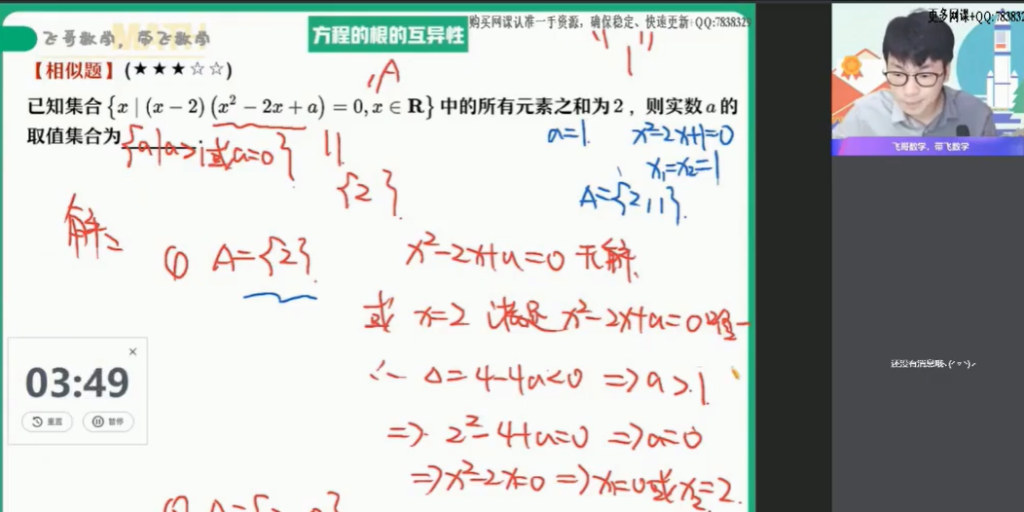 飞哥数学，带飞数学
方程的根的互异性
购买网课认准一手资源，确保稳定、快速更新+QQ:7838329
更多网课+QQ:78383
【相似题】(★★★☆☆)
"A
已知集合{x | (x−2)(x²−2x+a)=0,x∈R}中的所有元素之和为2，则实数a的
取值集合为
{a|a>1或a=0}
{2}
a=1. x²-2x+1=0
x₁=x₂=1
A={2,1}.
解:
① A={2}. x²-2x+a=0 无解.
或 x=2 满足 x²-2x+a=0
∴ Δ=4-4a<0 ⇒a>1.
⇒ 2²-4+a=0 ⇒a=0
⇒x²-2x=0 ⇒x₁=0或x₂=2.
03:49
重置 暂停
飞哥数学，带飞数学
还没有消息哦